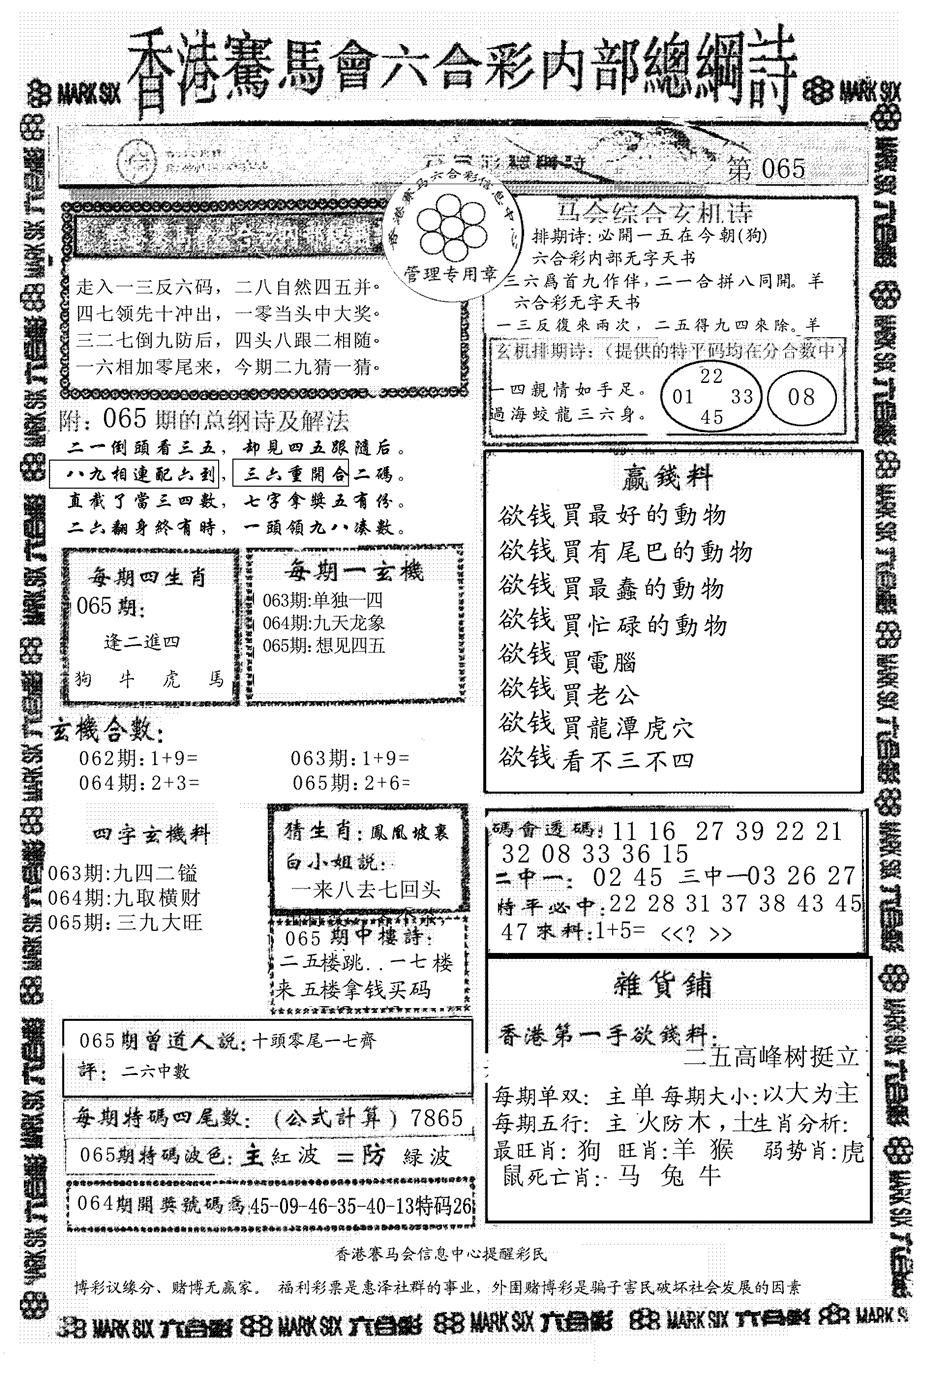 香港賽馬會六合彩内部總綱詩
MARK SIX
MARK SIX
第 065
香港赛马六合彩信息中心
管理专用章
走入一三反六码，二八自然四五并。
四七领先十冲出，一零当头中大奖。
三二七倒九防后，四头八跟二相随。
一六相加零尾来，今期二九猜一猜。
附：065期的总纲诗及解法
二一倒頭看三五，却見四五跟隨后。
八九相連配六到，三六重開合二碼。
直截了當三四數，七字拿獎五有份。
二六翻身終有時，一頭領九八凑數。
每期四生肖
065期：
逢二進四
狗 牛 虎 馬
每期一玄機
063期:单独一四
064期:九天龙象
065期:想见四五
玄機合數：
062期:1+9= 063期:1+9=
064期:2+3= 065期:2+6=
四字玄機料
063期:九四二镒
064期:九取横财
065期:三九大旺
猜生肖：鳳凰坡裏
白小姐説：
一来八去七回头
065期中樓詩：
二五楼跳..一七楼
来五楼拿钱买码
065期曾道人説：十頭零尾一七齊
評：二六中數
每期特碼四尾數：（公式計算）7865
065期特碼波色：主紅波=防 緑波
064期開奬號碼爲:45-09-46-35-40-13特码26
马会综合玄机诗
排期诗:必開一五在今朝(狗)
六合彩内部无字天书
三六爲首九作伴,二一合拼八同開。羊
六合彩无字天书
一三反復來兩次，二五得九四來除。羊
玄机排期诗：（提供的特平码均在分合数中）
一四親情如手足。
過海蛟龍三六身。
22
01 33
45
08
贏錢料
欲钱買最好的動物
欲钱買有尾巴的動物
欲钱買最蠢的動物
欲钱買忙碌的動物
欲钱買電腦
欲钱買老公
欲钱買龍潭虎穴
欲钱看不三不四
碼會透碼：11 16 27 39 22 21
32 08 33 36 15
二中一：02 45 三中一03 26 27
特平必中:22 28 31 37 38 43 45
47 來料:1+5= <<? >>
雜貨鋪
香港第一手欲錢料：
二五高峰树挺立
每期单双：主单 每期大小:以大为主
每期五行：主 火防木，土生肖分析：
最旺肖：狗 旺肖:羊 猴 弱势肖:虎
鼠死亡肖：马 兔 牛
香港賽马会信息中心提醒彩民
博彩议缘分、赌博无赢家。福利彩票是惠泽社群的事业，外围赌博彩是骗子害民破坏社会发展的因素
MARK SIX 六合彩 MARK SIX 六合彩 MARK SIX 六合彩 MARK SIX 六合彩 MARK SIX